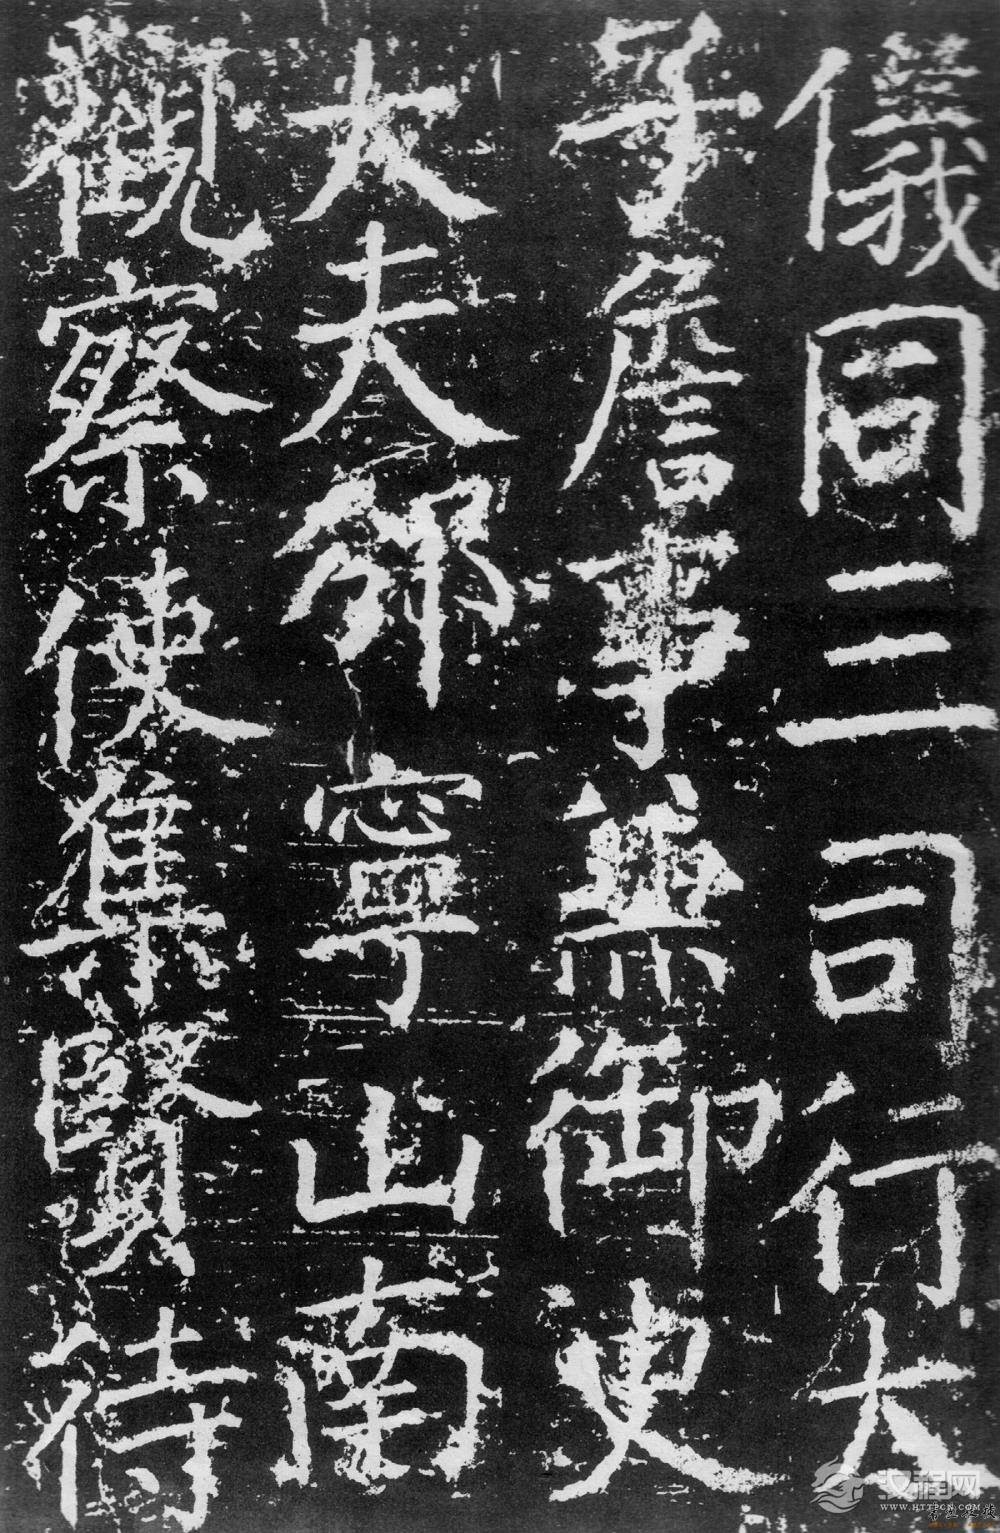 儀同三司行大
子詹事兼御史
大夫邠寧山南
觀察使集賢待
汉程网
WWW.HTTPCN.COM